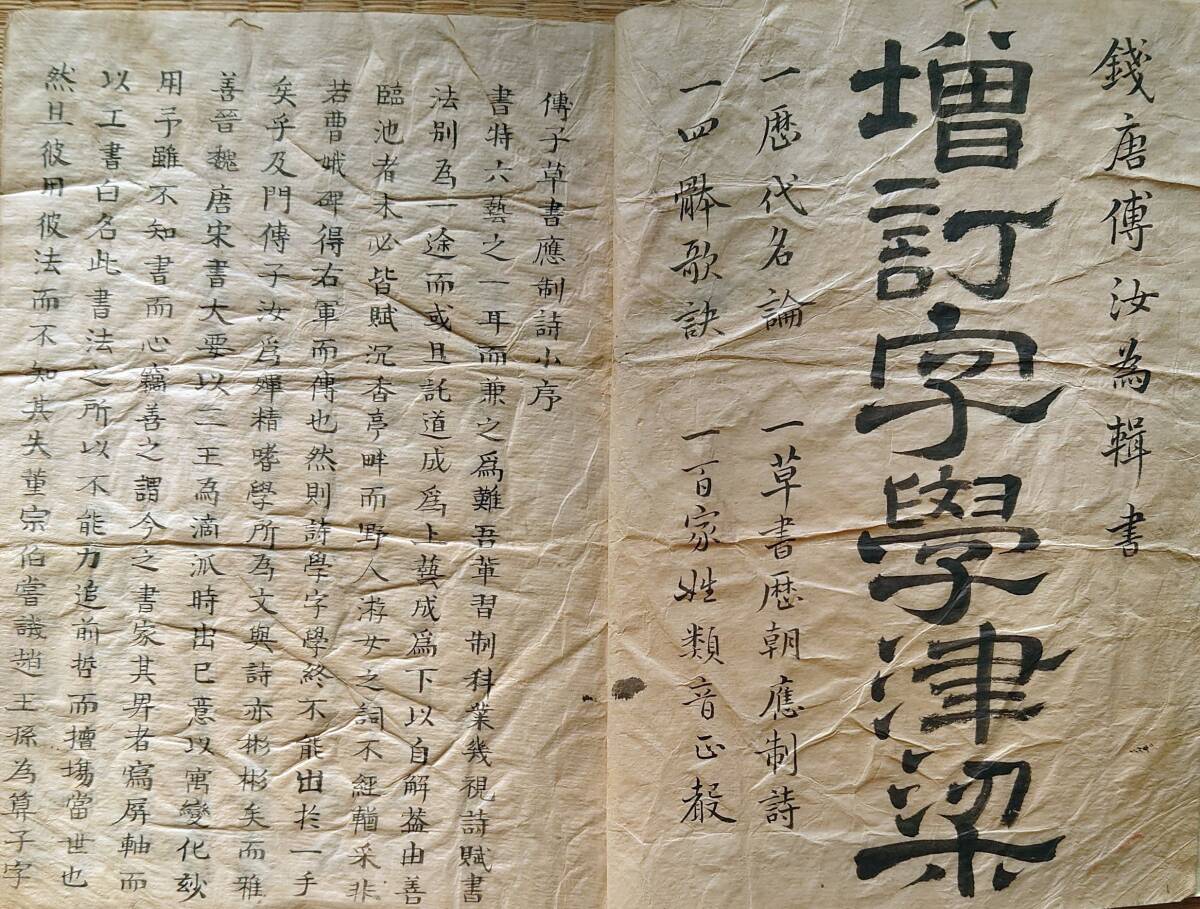 錢唐傅汝為輯書
增訂字學津梁
一歷代名論 一草書歷朝應制詩
一四骵歌訣 一百家姓類音正嗀
傅子草書應制詩小序
書特六藝之一耳而兼之爲難吾軰習制科業幾視詩賦書
法別為一途而或且託道成爲上藝成爲下以自解葢由善
臨池者未必皆賦沉香亭畔而野人游女之詞不經輶采非
若曹娥碑得右軍而傳也然則詩學字學終不能出扵一手
矣乎及門傅子汝爲殫精嗜學所為文與詩亦彬彬矣而雅
善晉魏唐宋書大要以二王為滴派時出已意以寓變化玅
用予雖不知書而心竊善之謂今之書家其畀者寫屏軸而
以工書自名此書法之所以不能力追前哲而擅塲當世也
然且彼用彼法而不知其失董宗伯嘗議趙王孫為算子字